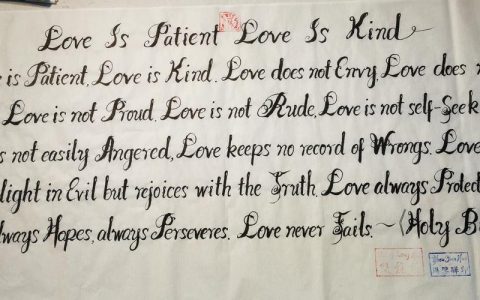 Love Is Patient Love Is Kind
is Patient, Love is Kind. Love does not Envy, Love does
Love is not Proud. Love is not Rude, Love is not self-Seek
s not easily Angered, Love keeps no record of Wrongs. Love
light in Evil but rejoices with the Truth. Love always Protec
lways Hopes, always Perseveres. Love never Fails. ~ (Holy B